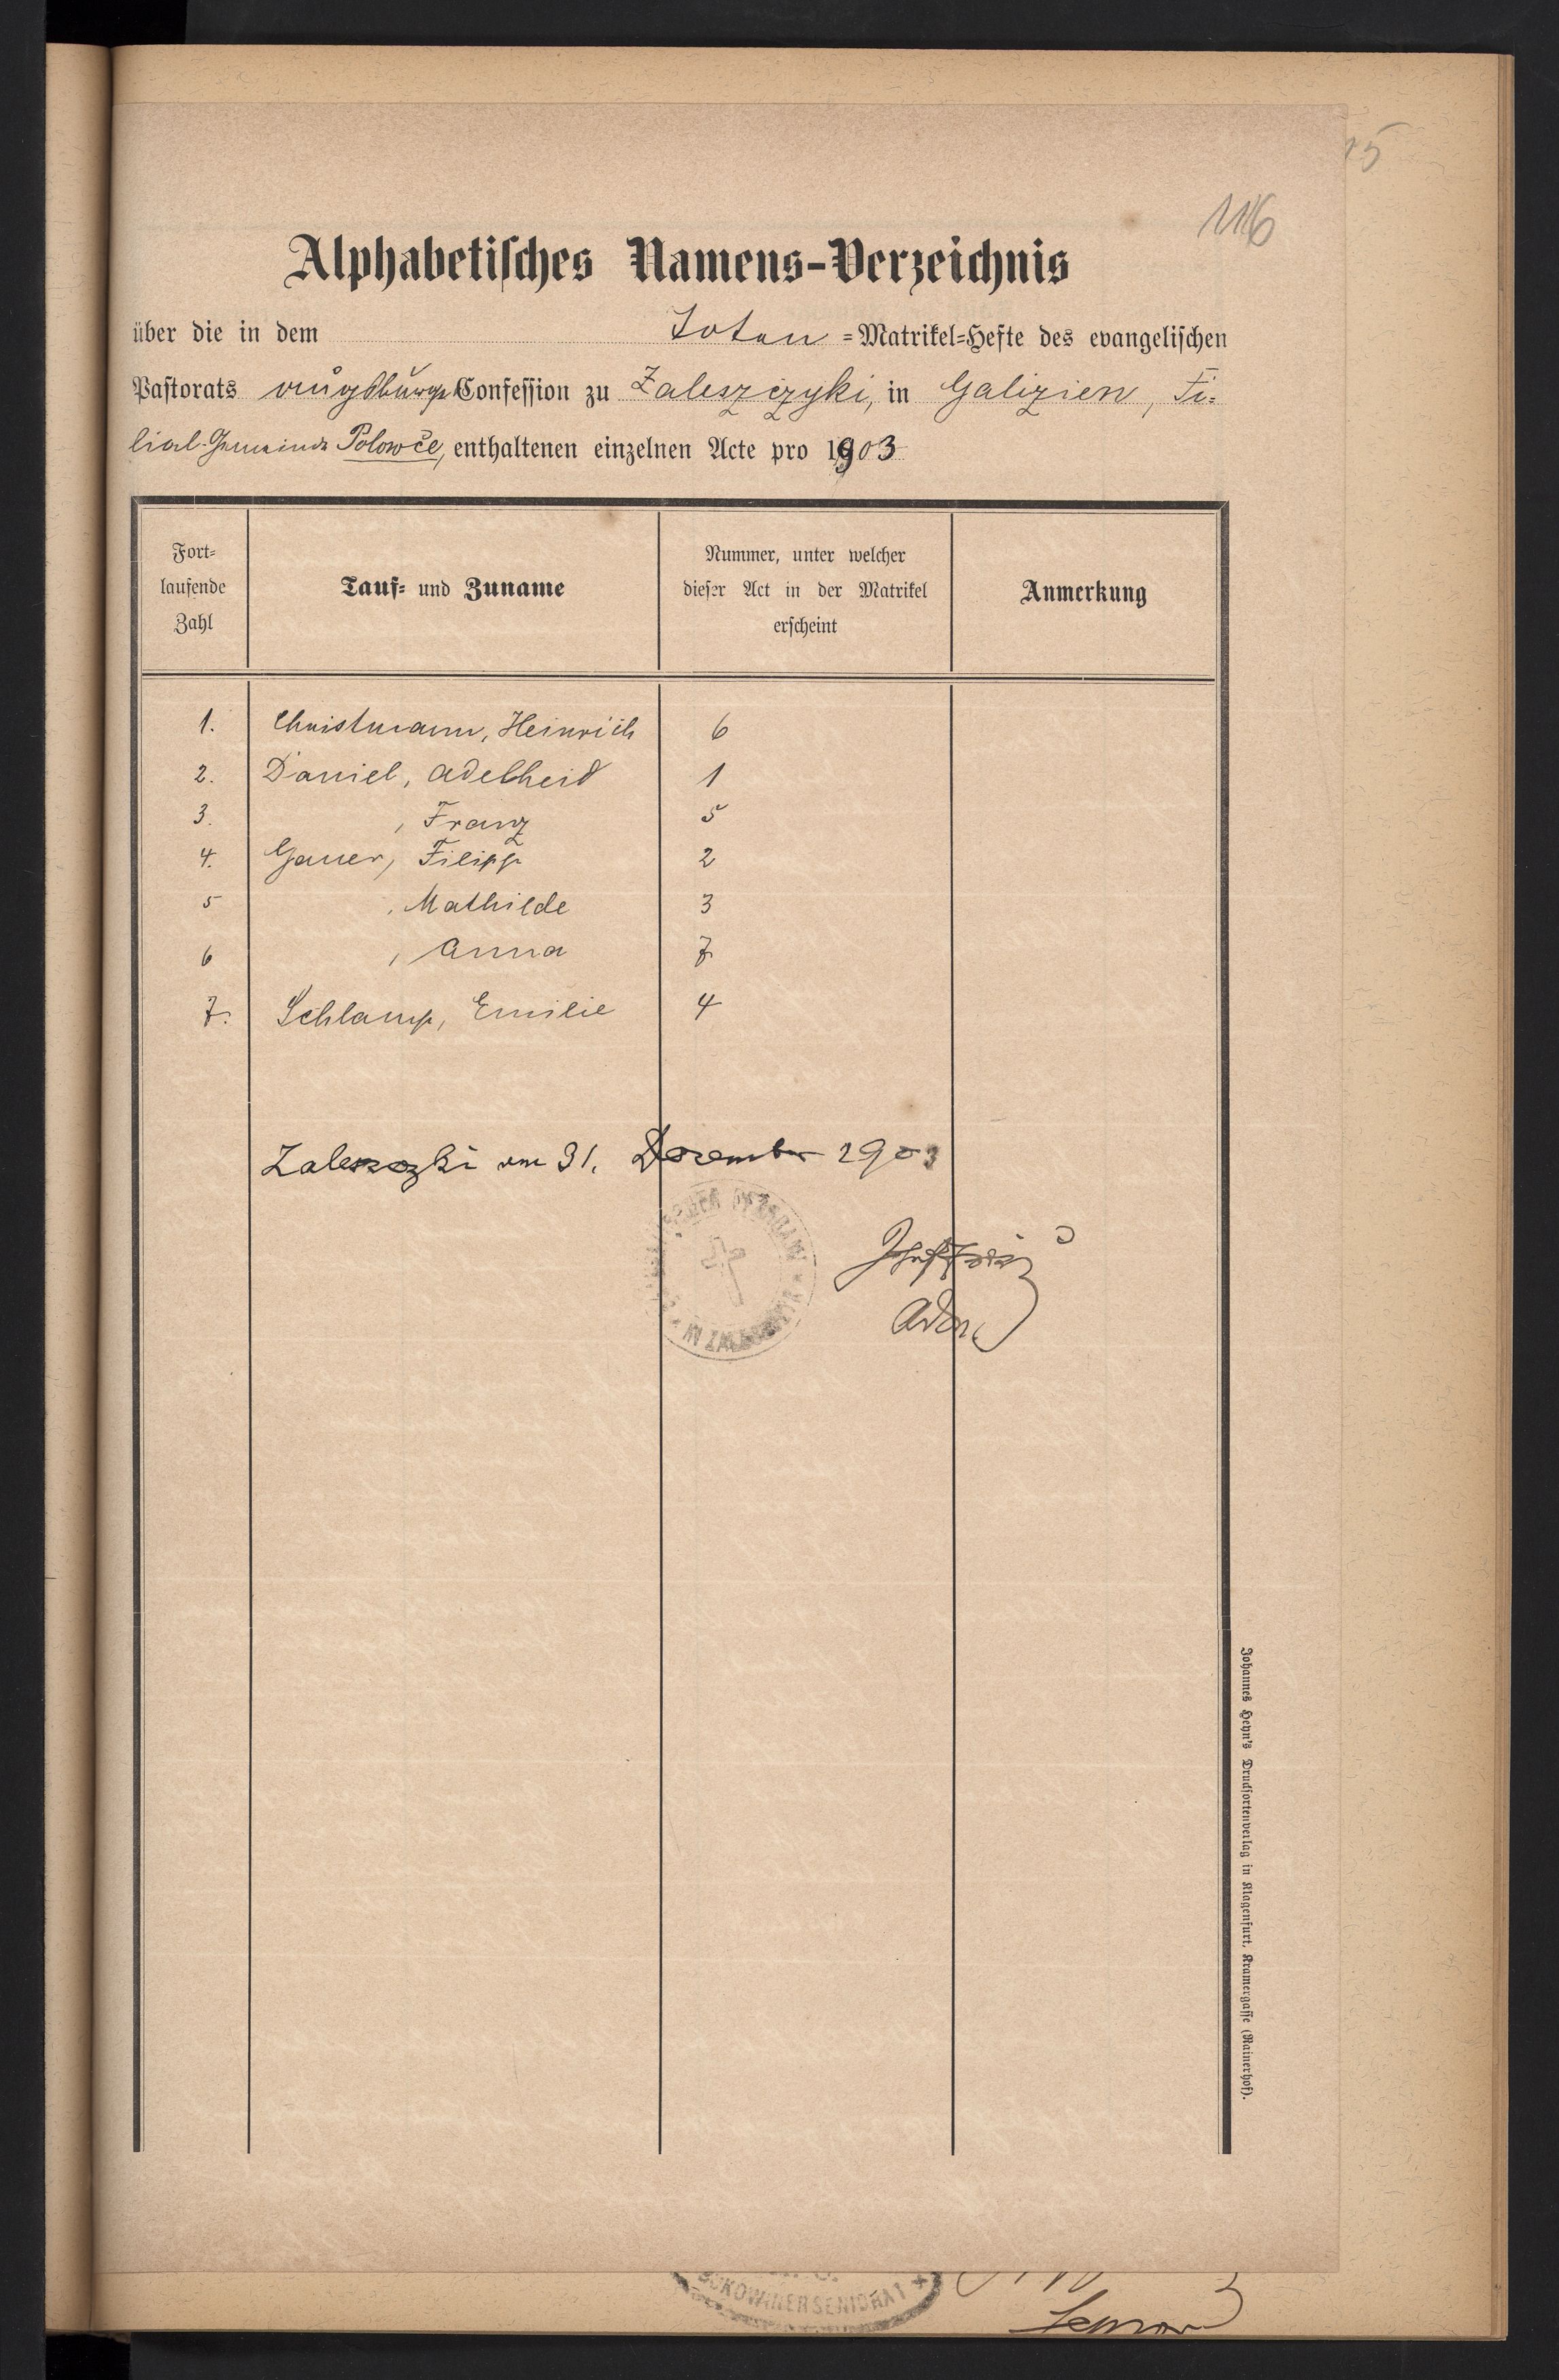 15
116
Alphabetisches Namens-Verzeichnis
über die in dem Toten =Matrikel=Hefte des evangelischen
Pastorats augsburg. Confession zu Zaleszczyki, in Galizien, Fi=
lial-Gemeinde Polowce, enthaltenen einzelnen Acte pro 1903
Fort=
laufende
Zahl
Tauf= und Zuname
Nummer, unter welcher
dieser Act in der Matrikel
erscheint
Anmerkung
1. Christmann, Heinrich 6
2. Daniel, Adelheid 1
3. , Franz 5
4. Gauer, Filipp 2
5 , Mathilde 3
6 , Anna 7
7. Schlamp, Emilie 4
Zaleszczki am 31. Dezember 1903
Johannes Heyn's Drucksortenverlag in Klagenfurt, Kramergasse (Rainerhof).
BUKOWINER SENIORAT
Senior